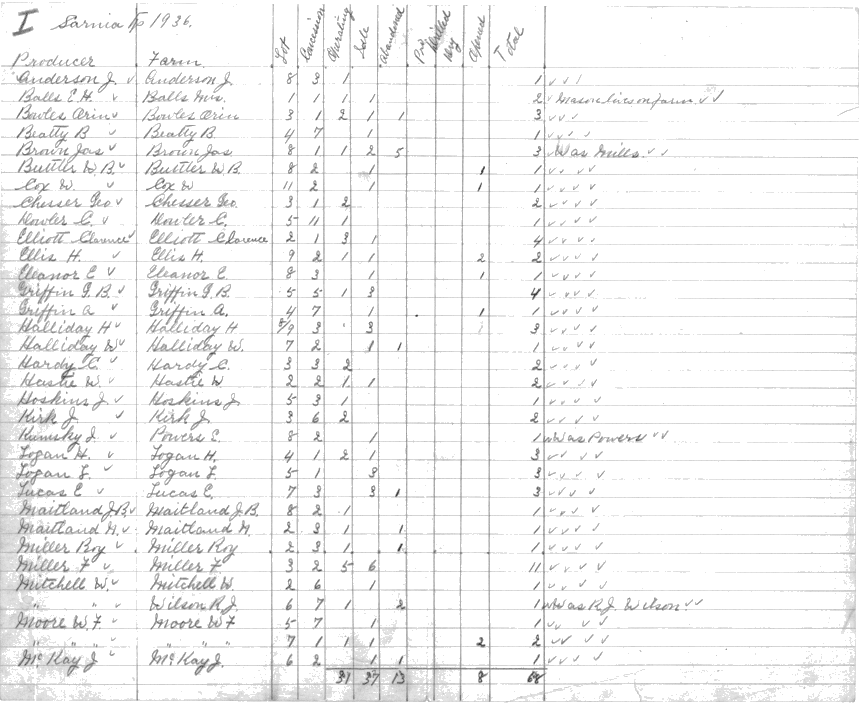 I Sarnia Tp 1936.
Producer Farm Lot Concession Operating Idle Abandoned Drilled Dry Opened Total
Anderson J. ✓ Anderson J 8 3 1 1 ✓ ✓ 1
Balls E H. ✓ Balls Mrs. 1 1 1 1 2 ✓ Mason lives on farm ✓ ✓
Bowles Orin ✓ Bowles Orin 3 1 2 1 1 3 ✓ ✓ ✓
Beatty B ✓ Beatty B 4 7 1 1 ✓ ✓ ✓
Brown Jas ✓ Brown Jas 8 1 1 2 5 3 Was Mills ✓ ✓
Buttler W B. ✓ Buttler W B. 8 2 1 1 1 ✓ ✓ ✓
Cox W. ✓ Cox W 11 2 1 1 1 ✓ ✓ ✓ ✓
Chesser Geo ✓ Chesser Geo. 3 1 2 2 ✓ ✓ ✓ ✓
Dowler C. ✓ Dowler C. 5 11 1 1 ✓ ✓ ✓ ✓
Elliott Clarence ✓ Elliott Clarence 2 1 3 1 4 ✓ ✓ ✓ ✓
Ellis H. ✓ Ellis H. 9 2 1 1 2 2 ✓ ✓ ✓ ✓
Eleanor E ✓ Eleanor E. 8 3 1 1 1 ✓ ✓ ✓ ✓
Griffin G. B. ✓ Griffin G. B 5 5 1 3 4 ✓ ✓ ✓ ✓
Griffin A ✓ Griffin A. 4 7 1 1 1 ✓ ✓ ✓ ✓
Halliday H ✓ Halliday H 8/9 3 3 3 ✓ ✓ ✓ ✓
Halliday W ✓ Halliday W. 7 2 1 1 1 ✓ ✓ ✓ ✓
Hardy C. ✓ Hardy C. 3 3 2 2 ✓ ✓ ✓ ✓
Hastie W. ✓ Hastie W 2 2 1 1 2 ✓ ✓ ✓ ✓
Hoskins J. ✓ Hoskins J 5 3 1 1 ✓ ✓ ✓ ✓
Kirk J. ✓ Kirk J. 3 6 2 2 ✓ ✓ ✓ ✓
Kumsky J. ✓ Powers E. 8 2 1 1 ✓ Was Powers ✓ ✓
Logan H. ✓ Logan H. 4 1 2 1 3 ✓ ✓ ✓ ✓
Logan L. ✓ Logan L 5 1 3 3 ✓ ✓ ✓ ✓
Lucas E ✓ Lucas E. 7 3 3 1 3 ✓ ✓ ✓ ✓
Maitland J. B. ✓ Maitland J. B. 8 2 1 1 ✓ ✓ ✓ ✓
Maitland N. ✓ Maitland N. 2 3 1 1 1 ✓ ✓ ✓ ✓
Miller Roy ✓ Miller Roy 2 3 1 1 1 ✓ ✓ ✓ ✓
Miller F ✓ Miller F. 3 2 5 6 11 ✓ ✓ ✓ ✓
Mitchell W. ✓ Mitchell W. 2 6 1 1 ✓ ✓ ✓ ✓
" " ✓ Wilson R. J. 6 7 1 2 1 ✓ Was R. J. Wilson ✓ ✓
Moore W F ✓ Moore W F 5 7 1 1 ✓ ✓ ✓ ✓
" " ✓ " " " 7 1 1 1 2 2 ✓ ✓ ✓ ✓
McKay J ✓ McKay J. 6 2 1 1 1 ✓ ✓ ✓ ✓
31 37 13 8 68